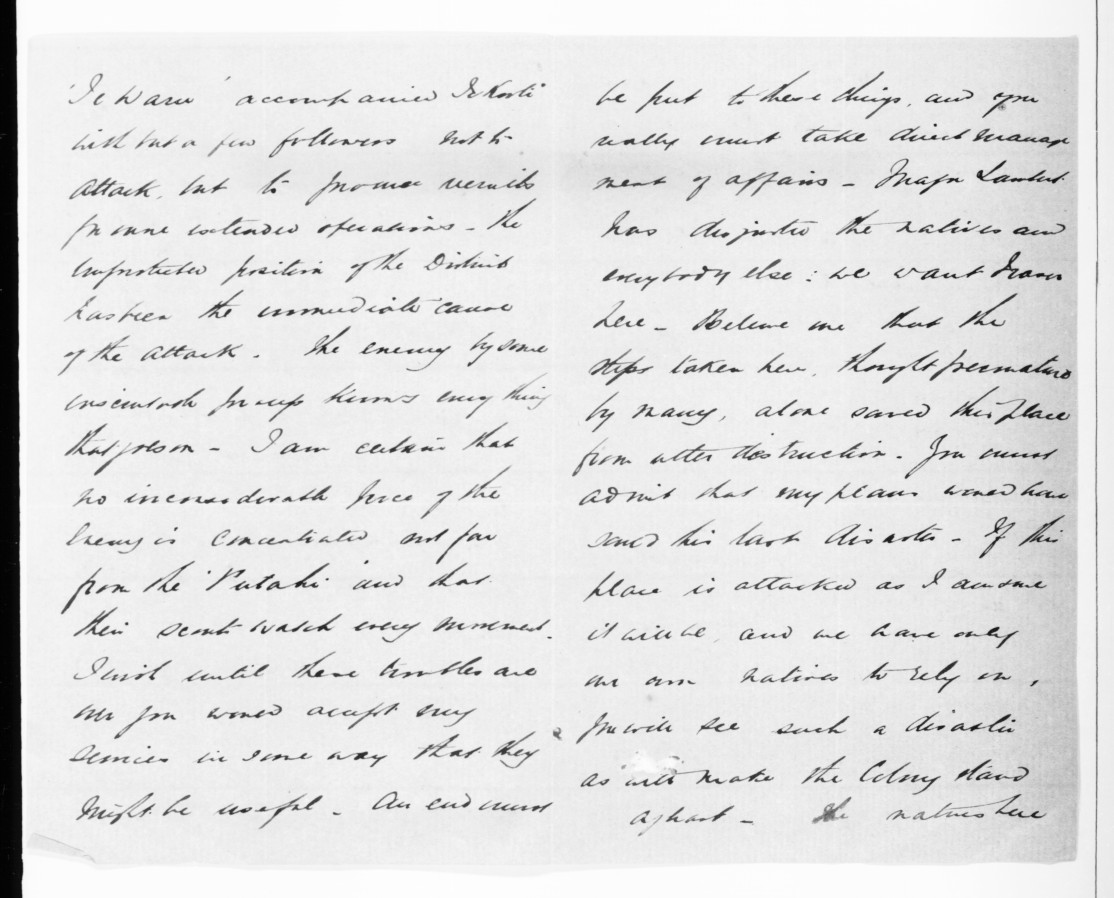 'Te Waru' accompanied Te Kooti
with but a few followers not to
attack, but to procure recruits
for more extended operations - The
unprotected position of the District
has been the immediate cause
of the attack. The enemy by some
inscrutable process knows every thing
that goes on - I am certain that
no inconsiderable force of the
Enemy is concentrated not far
from the 'Putahi' and that
their scouts watch every movement.
I wish until these troubles are
over you would accept my
services in some way that they
might be useful - An end must
be put to these things, and you
really must take direct manage
ment of affairs - Major Lambert
has disgusted the natives and
everybody else: we want
here - Believe me that the
steps taken here, thought premature
by many, alone saved this place
from utter destruction. You must
admit that my plans would have
saved this last disaster - If this
place is attacked as I am sure
it will be, and we have only
our own natives to rely on,
you will see such a disaster
as will make the Colony stand
aghast - The natives here